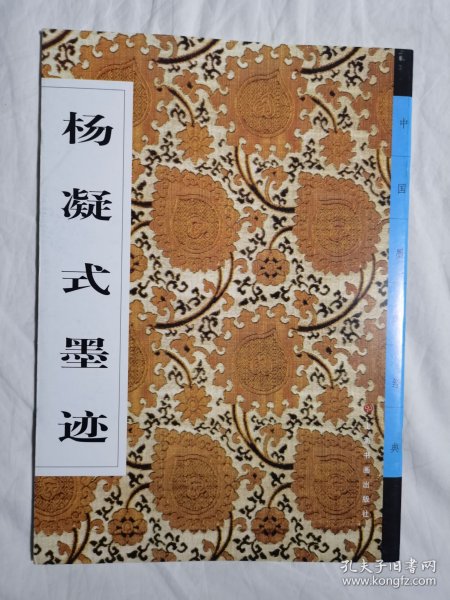 杨凝式墨迹
中国墨迹经典
书画出版社
孔夫子旧书网
www.kongfz.com